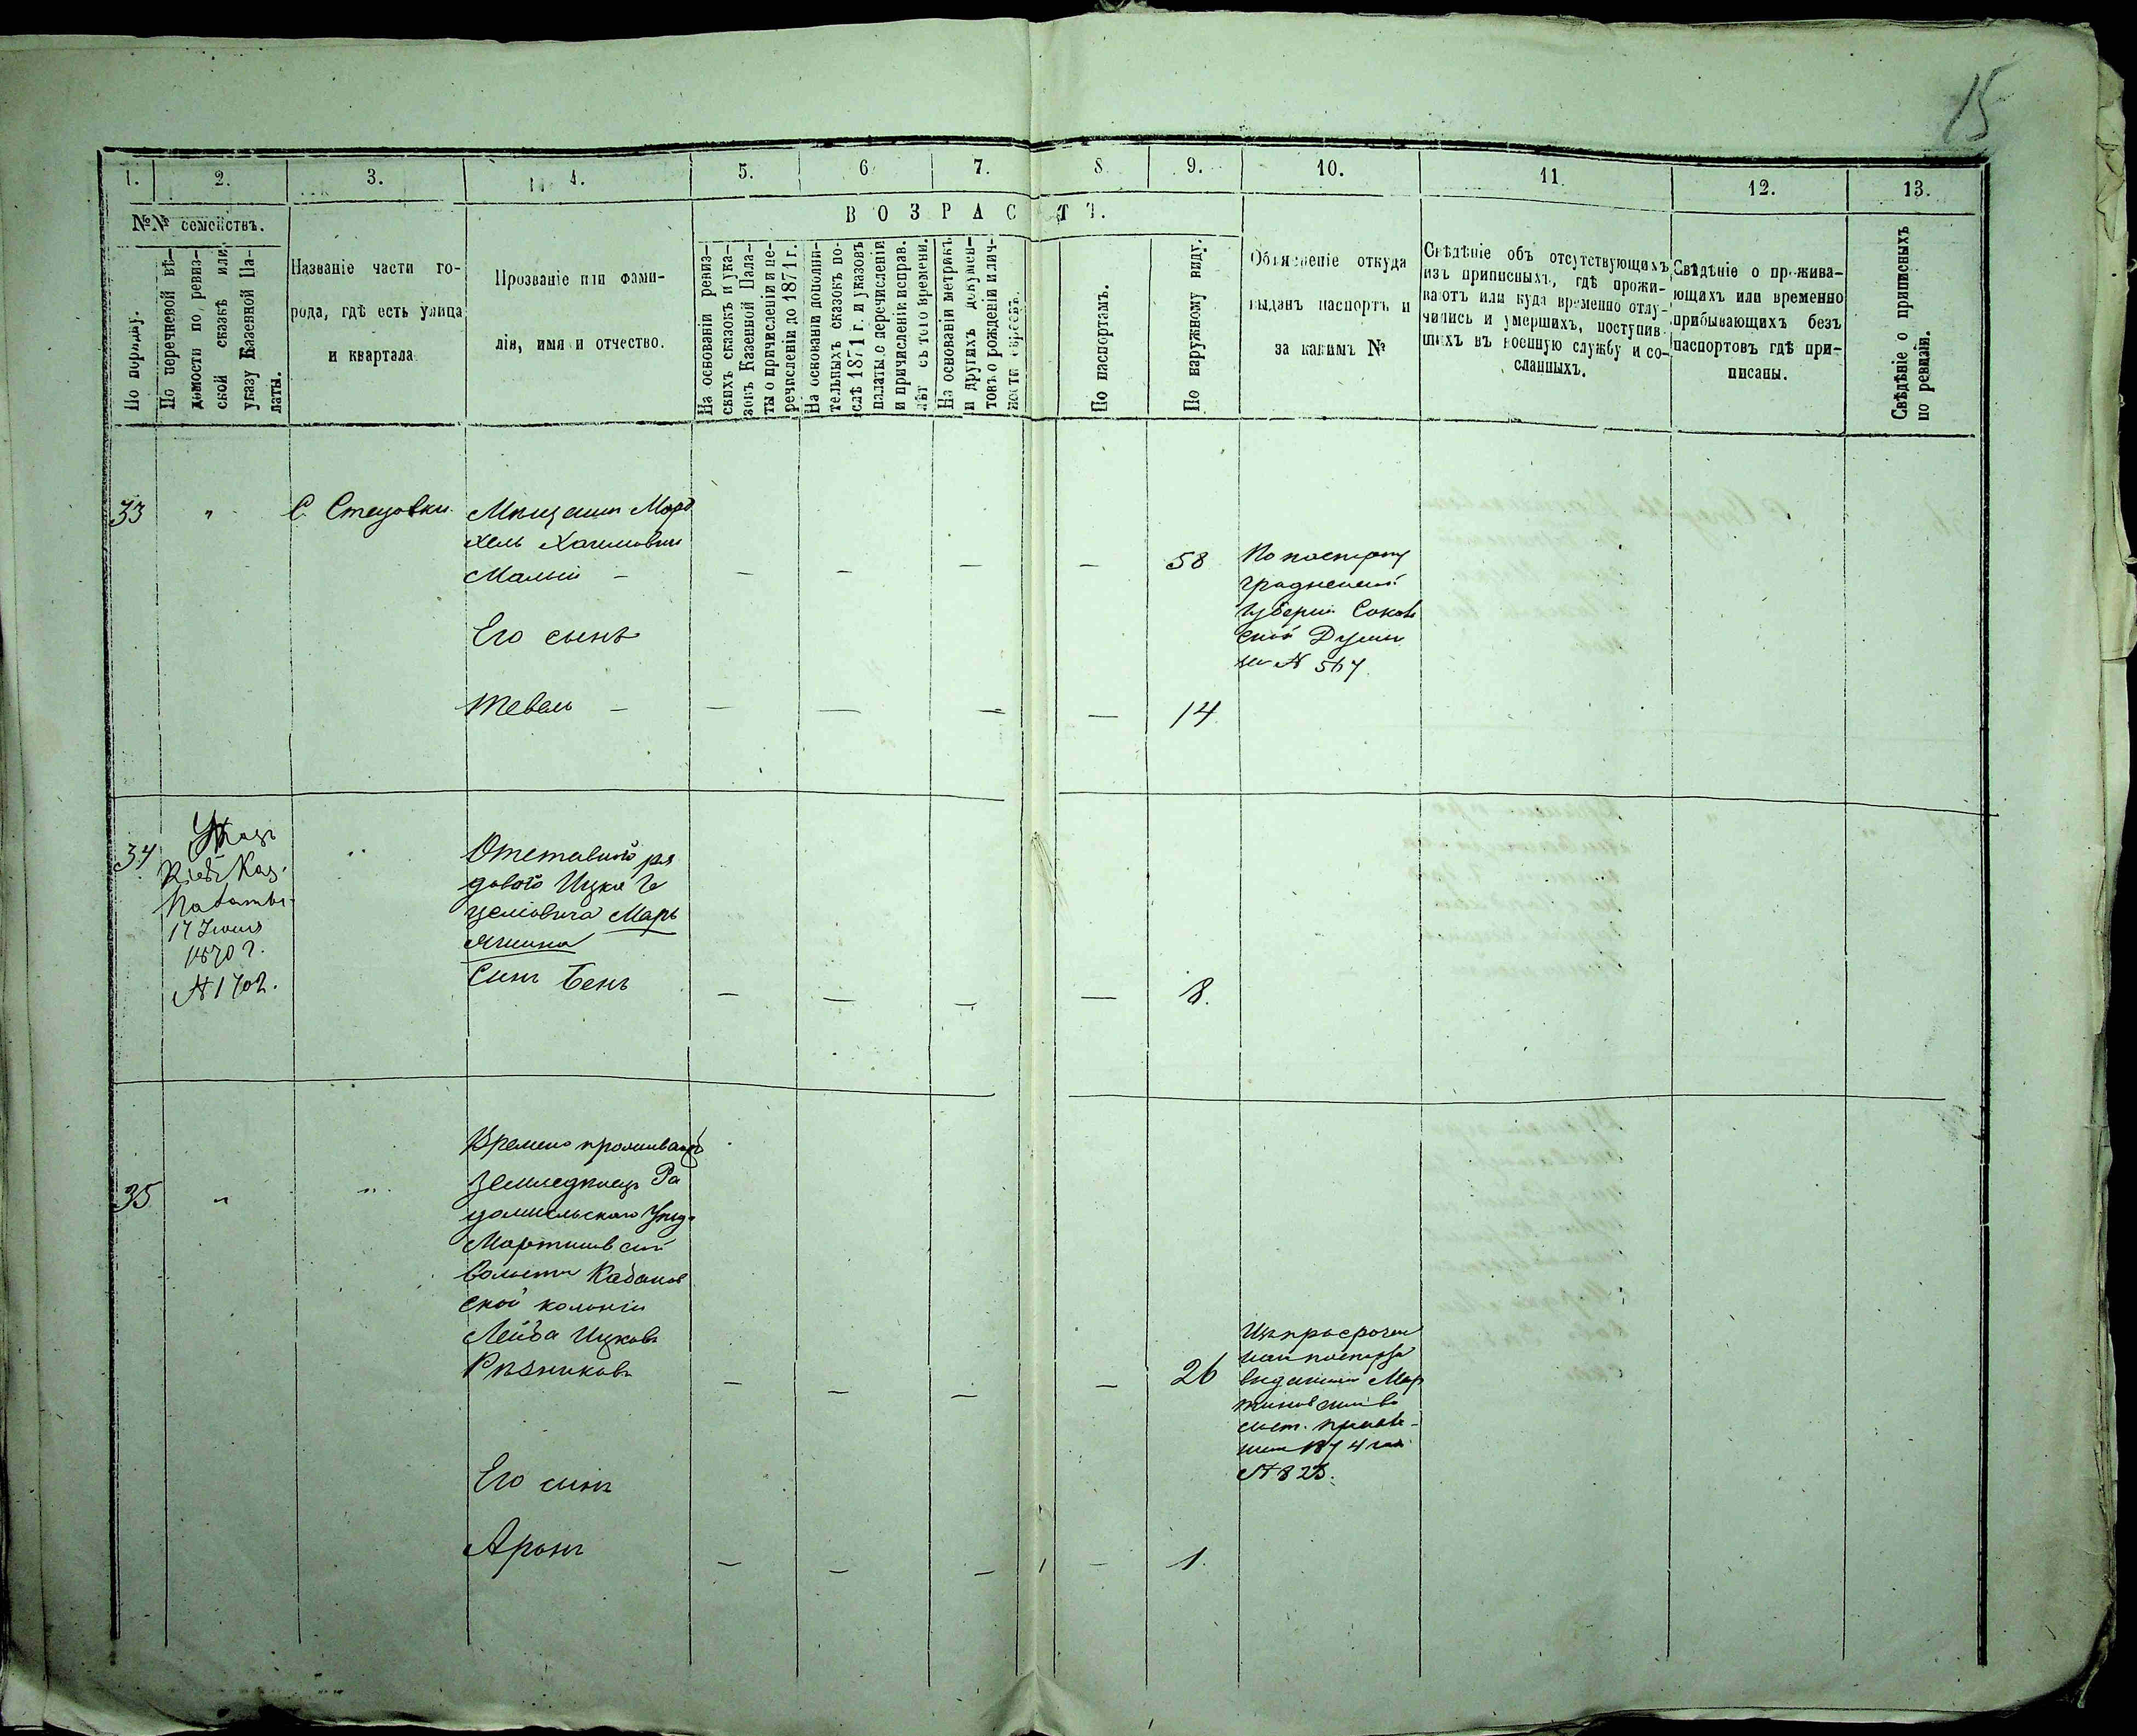 15
1. 2. 3. 4. 5. 6 7. 8 9. 10. 11. 12. 13.
№№ семействъ.
ВОЗРАСТЪ.
По порядку.
По перечневой вѣ-
домости по ревиз-
ской сказкѣ или
указу Казенной Па-
латы.
Названіе части го-
рода, гдѣ есть улица
и квартала
Прозваніе или фами-
лія, имя и отчество.
На основаніи ревиз-
скихъ сказокъ и ука-
зовъ Казенной Пала-
ты о причисленіи и пе-
речисленіи до 1871 г.
На основаніи дополни-
тельныхъ сказокъ по-
слѣ 1871 г. и указовъ
палаты о перечисленіи
и причисленіи исправ.
лѣт съ того времени.
На основаніи метрикъ
и другихъ докумен-
товъ о рожденіи и лич-
ности евреевъ.
По паспортамъ.
По наружному виду.
Объясненіе откуда
выданъ паспортъ и
за какимъ №
Свѣдѣніе объ отсутствующихъ
изъ приписныхъ, гдѣ прожи-
ваютъ или куда временно отлу-
чились и умершихъ, поступив-
шихъ въ военную службу и со-
сланныхъ.
Свѣдѣніе о прожива-
ющихъ или временно
прибывающихъ безъ
паспортовъ гдѣ при-
писаны.
Свѣдѣніе о приписныхъ
по ревизіи.
33 " С. Стецовки
Мѣщанин Морд
хель Хаимович
Малый - - - - - 58
Его сынъ
Тевель - - - - - 14
По паспорту
гродненской
губерніи
Думы
за № 567
34 "
Указ
Кіев. Каз.
Палаты
17 Іюня
1870 г.
№ 1702.
Отставного ря
дового Ицка Ге
целіовича Марь
Сынъ Бенъ - - - - 8.
35 " "
Времено проживающ
земледѣлецъ Ра
домисльскаго Уѣзд.
Мартинов ской
Волости Кабанов
ской колоніи
Лейба Ицковъ
Рѣзниковъ - - - - 26
Его сынъ
Аронъ - - - - 1.
№ 825.